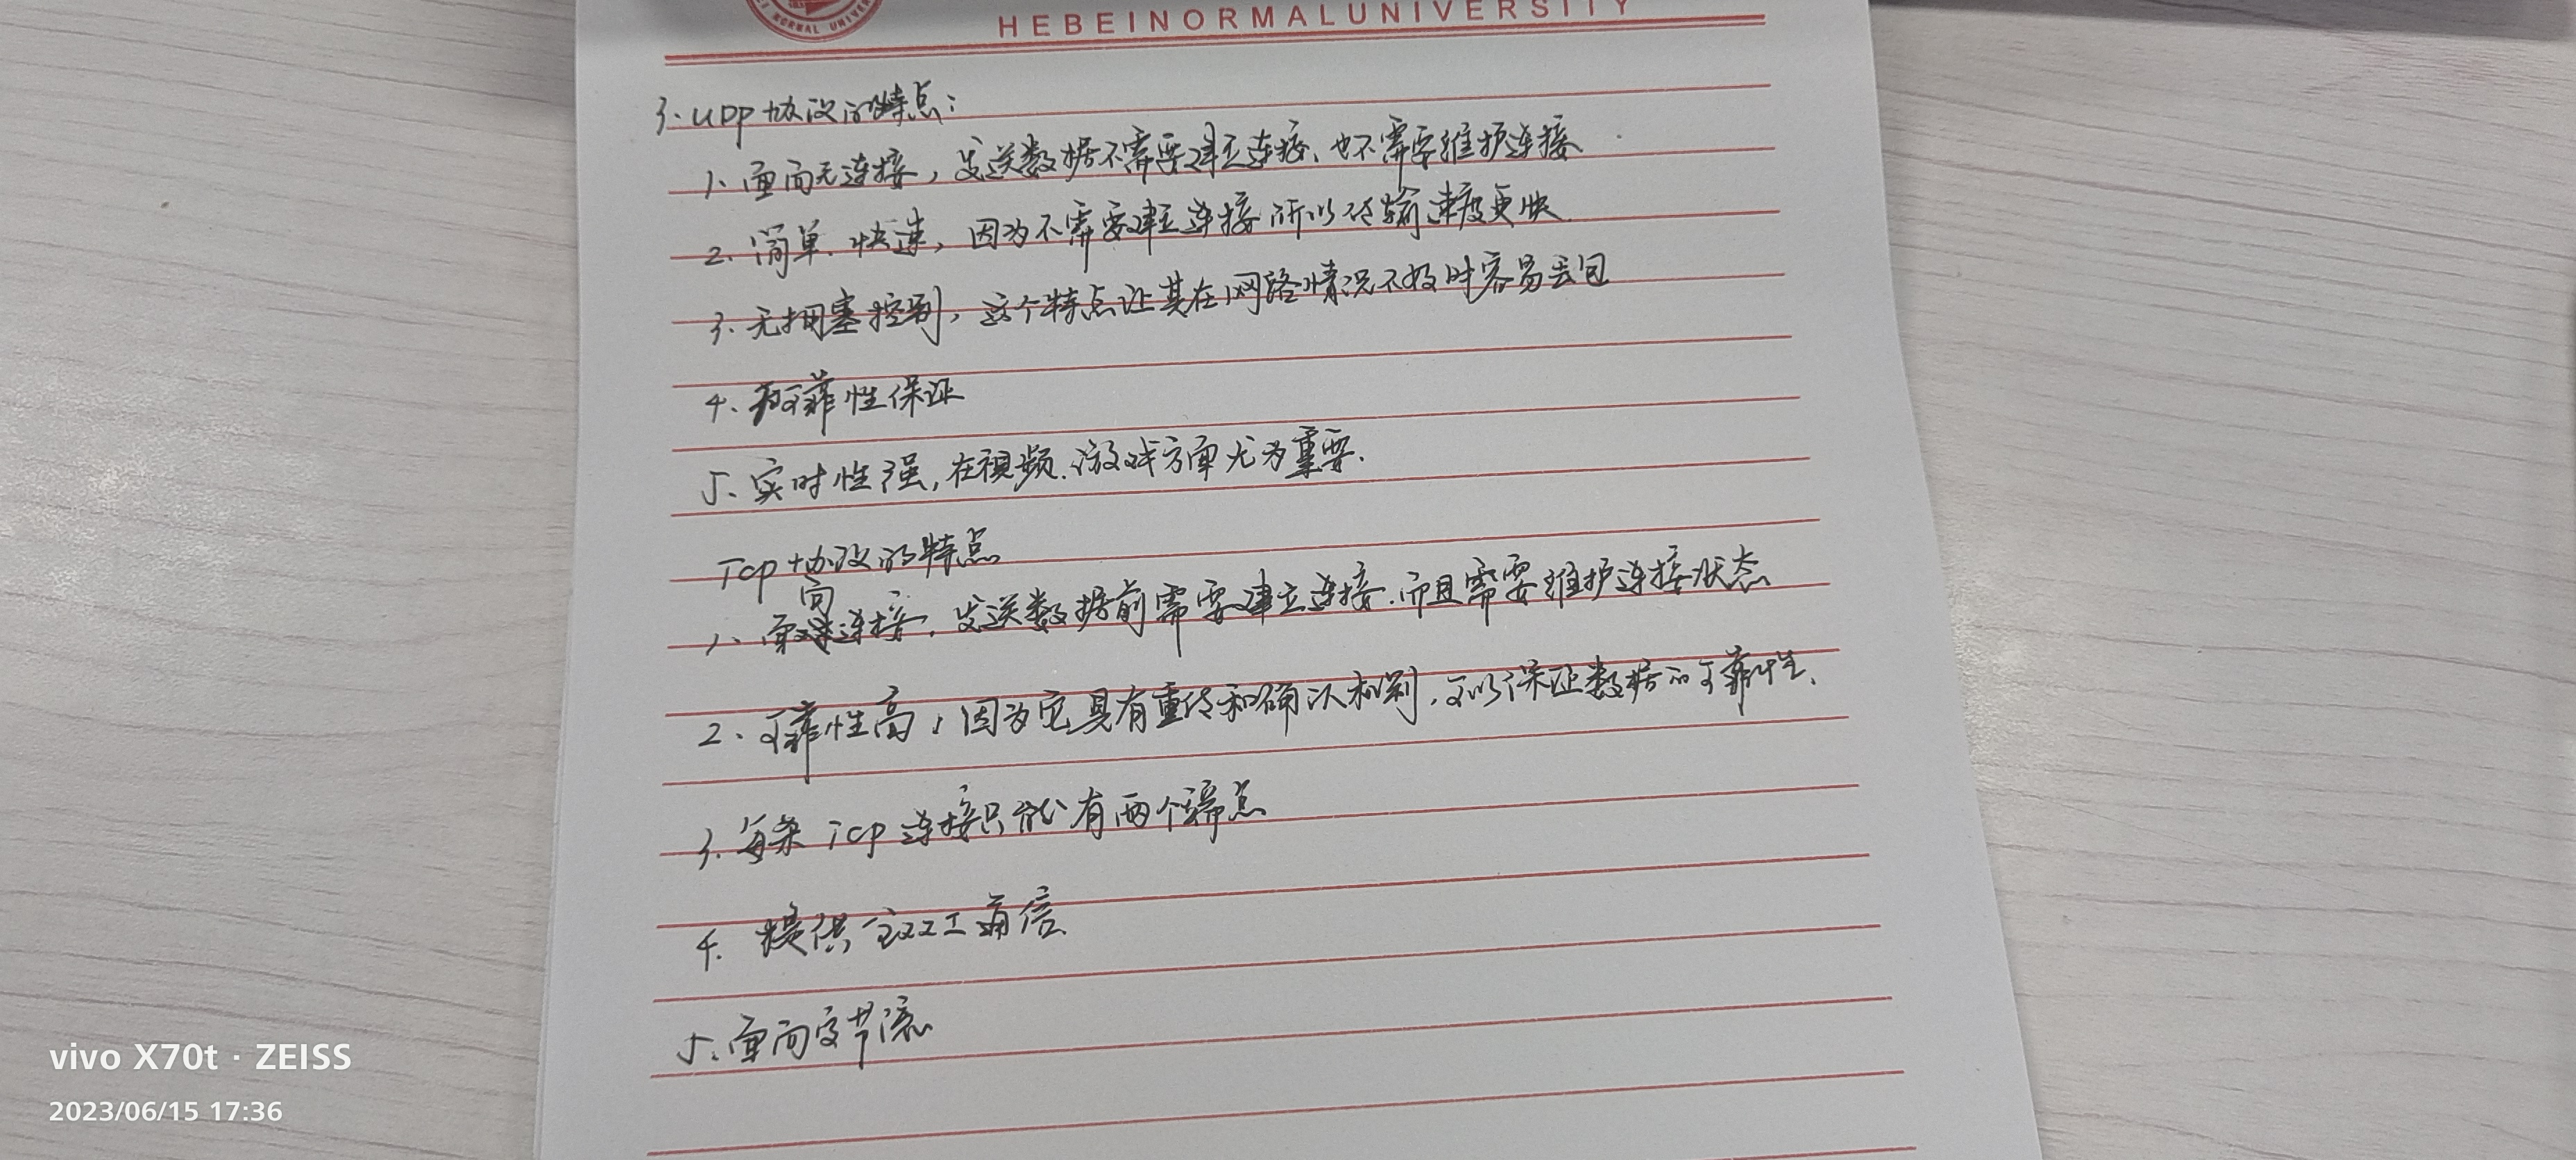 NORMAL UNIVER
HEBEINORMALUNIVERSITY
3. UDP协议的特点：
1、面向无连接，发送数据不需要建立连接、也不需要维护连接
2、简单、快速，因为不需要建立连接所以传输速度更快
3、无拥塞控制，这个特点让其在网络情况不好时容易丢包
4、可靠性保证
5、实时性强，在视频、游戏方面尤为重要.
Tcp协议的特点
1、面向连接，发送数据前需要建立连接.而且需要维护连接状态
2、可靠性高，因为它具有重传和确认机制，可以保证数据的可靠性、
3、每条Tcp连接只能有两个端点
4. 提供全双工通信
5、面向字节流
vivo X70t · ZEISS
2023/06/15 17:36